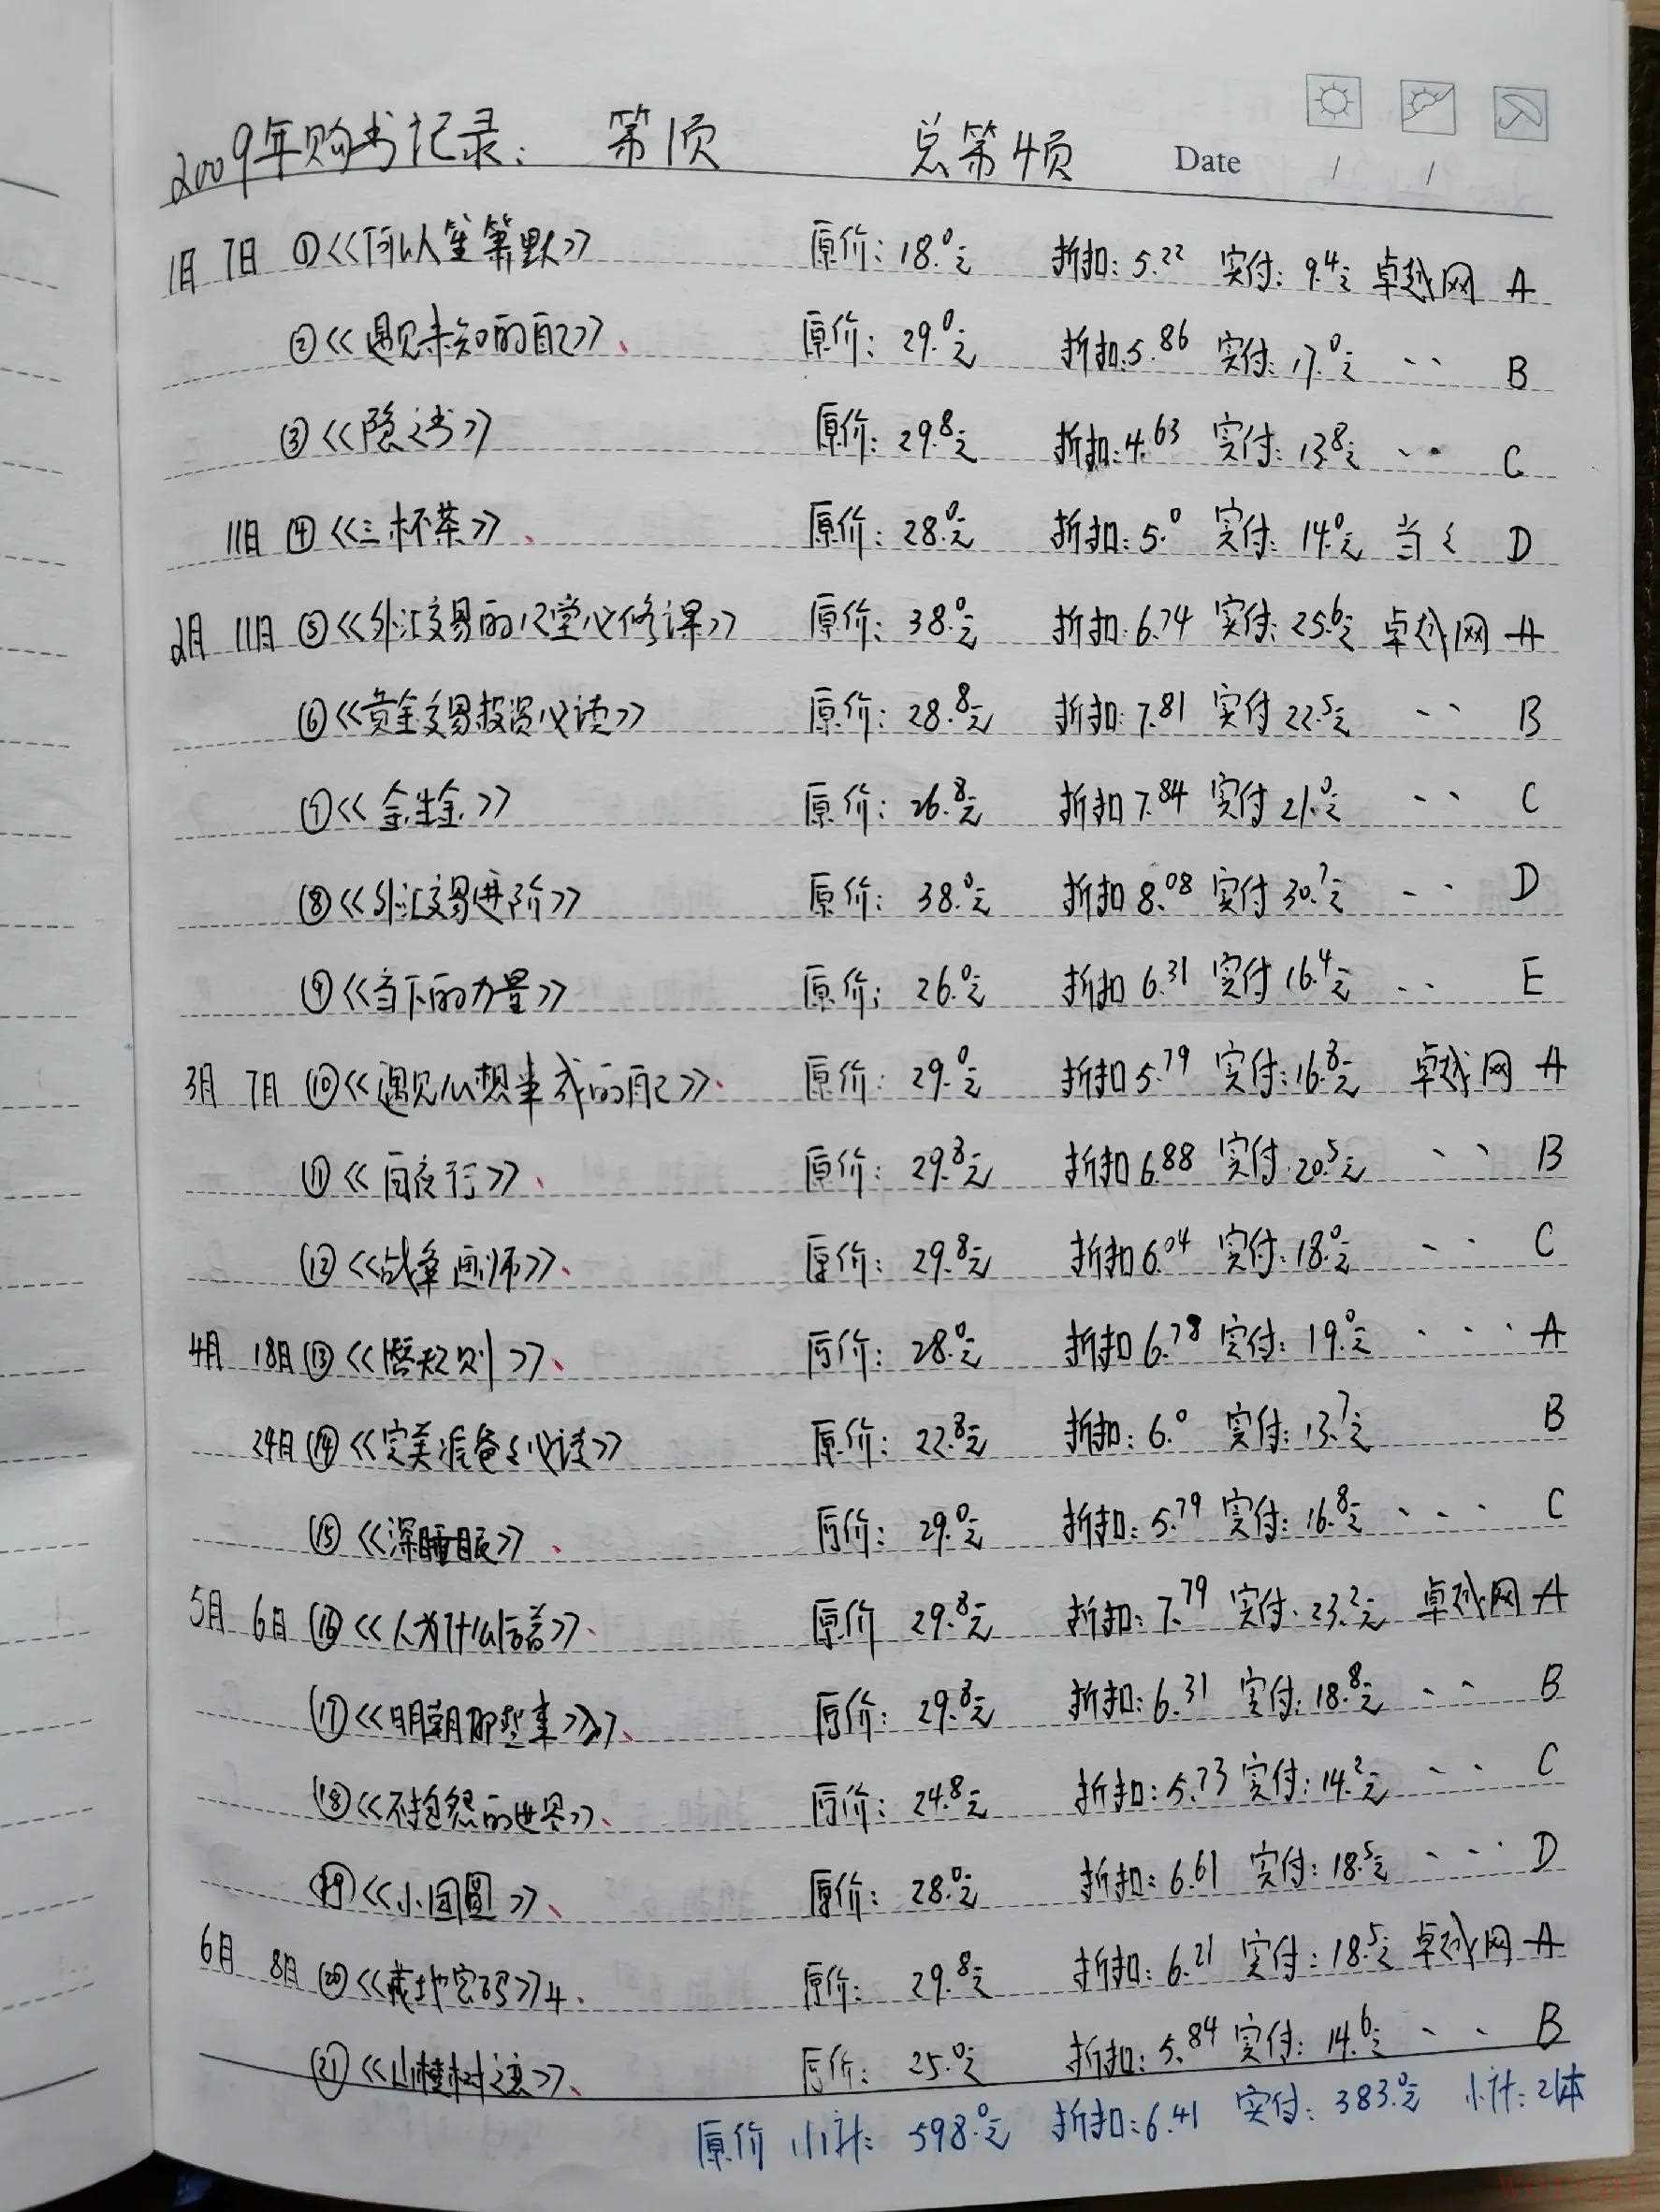 2009年购书记录: 第1页 总第4页 Date / /
1月 7日 ①《何以笙箫默》 原价: 18.0元 折扣: 5.22 实付: 9.4元 卓越网 A
②《遇见未知的自己》、 原价: 29.0元 折扣: 5.86 实付: 17.0元 、、 B
③《隐之书》 原价: 29.8元 折扣: 4.63 实付: 13.8元 、、 C
11日 ④《三杯茶》、 原价: 28.0元 折扣: 5.0 实付: 14.0元 当 D
2月 11日 ⑤《外汇交易的12堂必修课》 原价: 38.0元 折扣: 6.74 实付: 25.6元 卓越网 A
⑥《黄金交易投资必读》 原价: 28.8元 折扣: 7.81 实付 22.5元 、、 B
⑦《金生金》 原价: 26.8元 折扣 7.84 实付 21.0元 、、 C
⑧《外汇交易进阶》 原价: 38.0元 折扣 8.08 实付 30.7元 、、 D
⑨《当下的力量》 原价: 26.0元 折扣 6.31 实付 16.4元 、、 E
3月 7日 ⑩《遇见心想事成的自己》、 原价: 29.0元 折扣 5.79 实付: 16.8元 卓越网 A
⑪《白夜行》、 原价: 29.8元 折扣 6.88 实付: 20.5元 、、 B
⑫《战争画师》、 原价: 29.8元 折扣 6.04 实付: 18.0元 、、 C
4月 18日 ⑬《潜规则》、 原价: 28.0元 折扣 6.78 实付: 19.0元 、、、 A
24日 ⑭《完美准爸爸必读》 原价: 22.8元 折扣: 6.0 实付: 13.7元 B
⑮《深睡眠》、 原价: 29.0元 折扣: 5.79 实付: 16.8元 、、、 C
5月 6日 ⑯《人为什么活着》、 原价 29.8元 折扣: 7.79 实付: 23.2元 卓越网 A
⑰《明朝那些事》》、 原价: 29.8元 折扣: 6.31 实付: 18.8元 、、 B
⑱《不抱怨的世界》、 原价: 24.8元 折扣: 5.73 实付: 14.2元 、、 C
⑲《小团圆》、 原价: 28.0元 折扣: 6.61 实付: 18.5元 、、、 D
6月 8日 ⑳《藏地密码》4、 原价: 29.8元 折扣: 6.21 实付: 18.5元 卓越网 A
㉑《山楂树之恋》、 原价: 25.0元 折扣: 5.84 实付: 14.6元 、、 B
原价 小计: 598.0元 折扣: 6.41 实付: 383.0元 小计: 21本